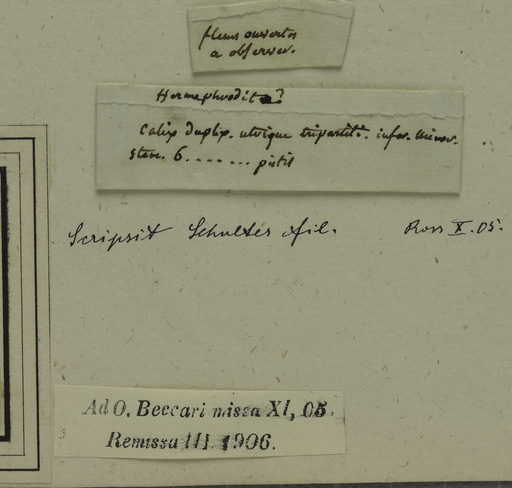 fleurs ouvertes
a observer.
Hermaphrodite?
Calix duplex. uterque tripartit. infer. minor.
stem. 6....... pistil
Scripsit Schultes fil. Ross X. 05.
Ad O. Beccari missa XI, 05.
Remissa III. 1906.